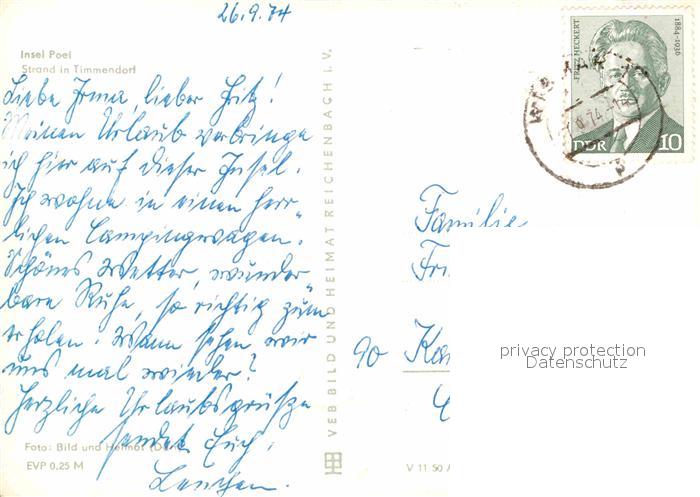 26.9.74
Insel Poel
Strand in Timmendorf
Liebe Irma, lieber Fritz!
Meinen Urlaub verbringe
ich hier auf dieser Insel.
Ich wohne in einen herr-
lichen Campingwagen.
Schönes Wetter, wunder-
bare Ruhe, so richtig zum
erholen. Wann sehen wir
uns mal wieder?
Herzliche Urlaubsgrüße
sendet Euch
Foto: Bild und Heimat
EVP 0,25 M
VEB BILD UND HEIMAT REICHENBACH I. V.
V 11 50
FRITZ HECKERT
1884-1936
DDR 10
Familie
90
privacy protection
Datenschutz